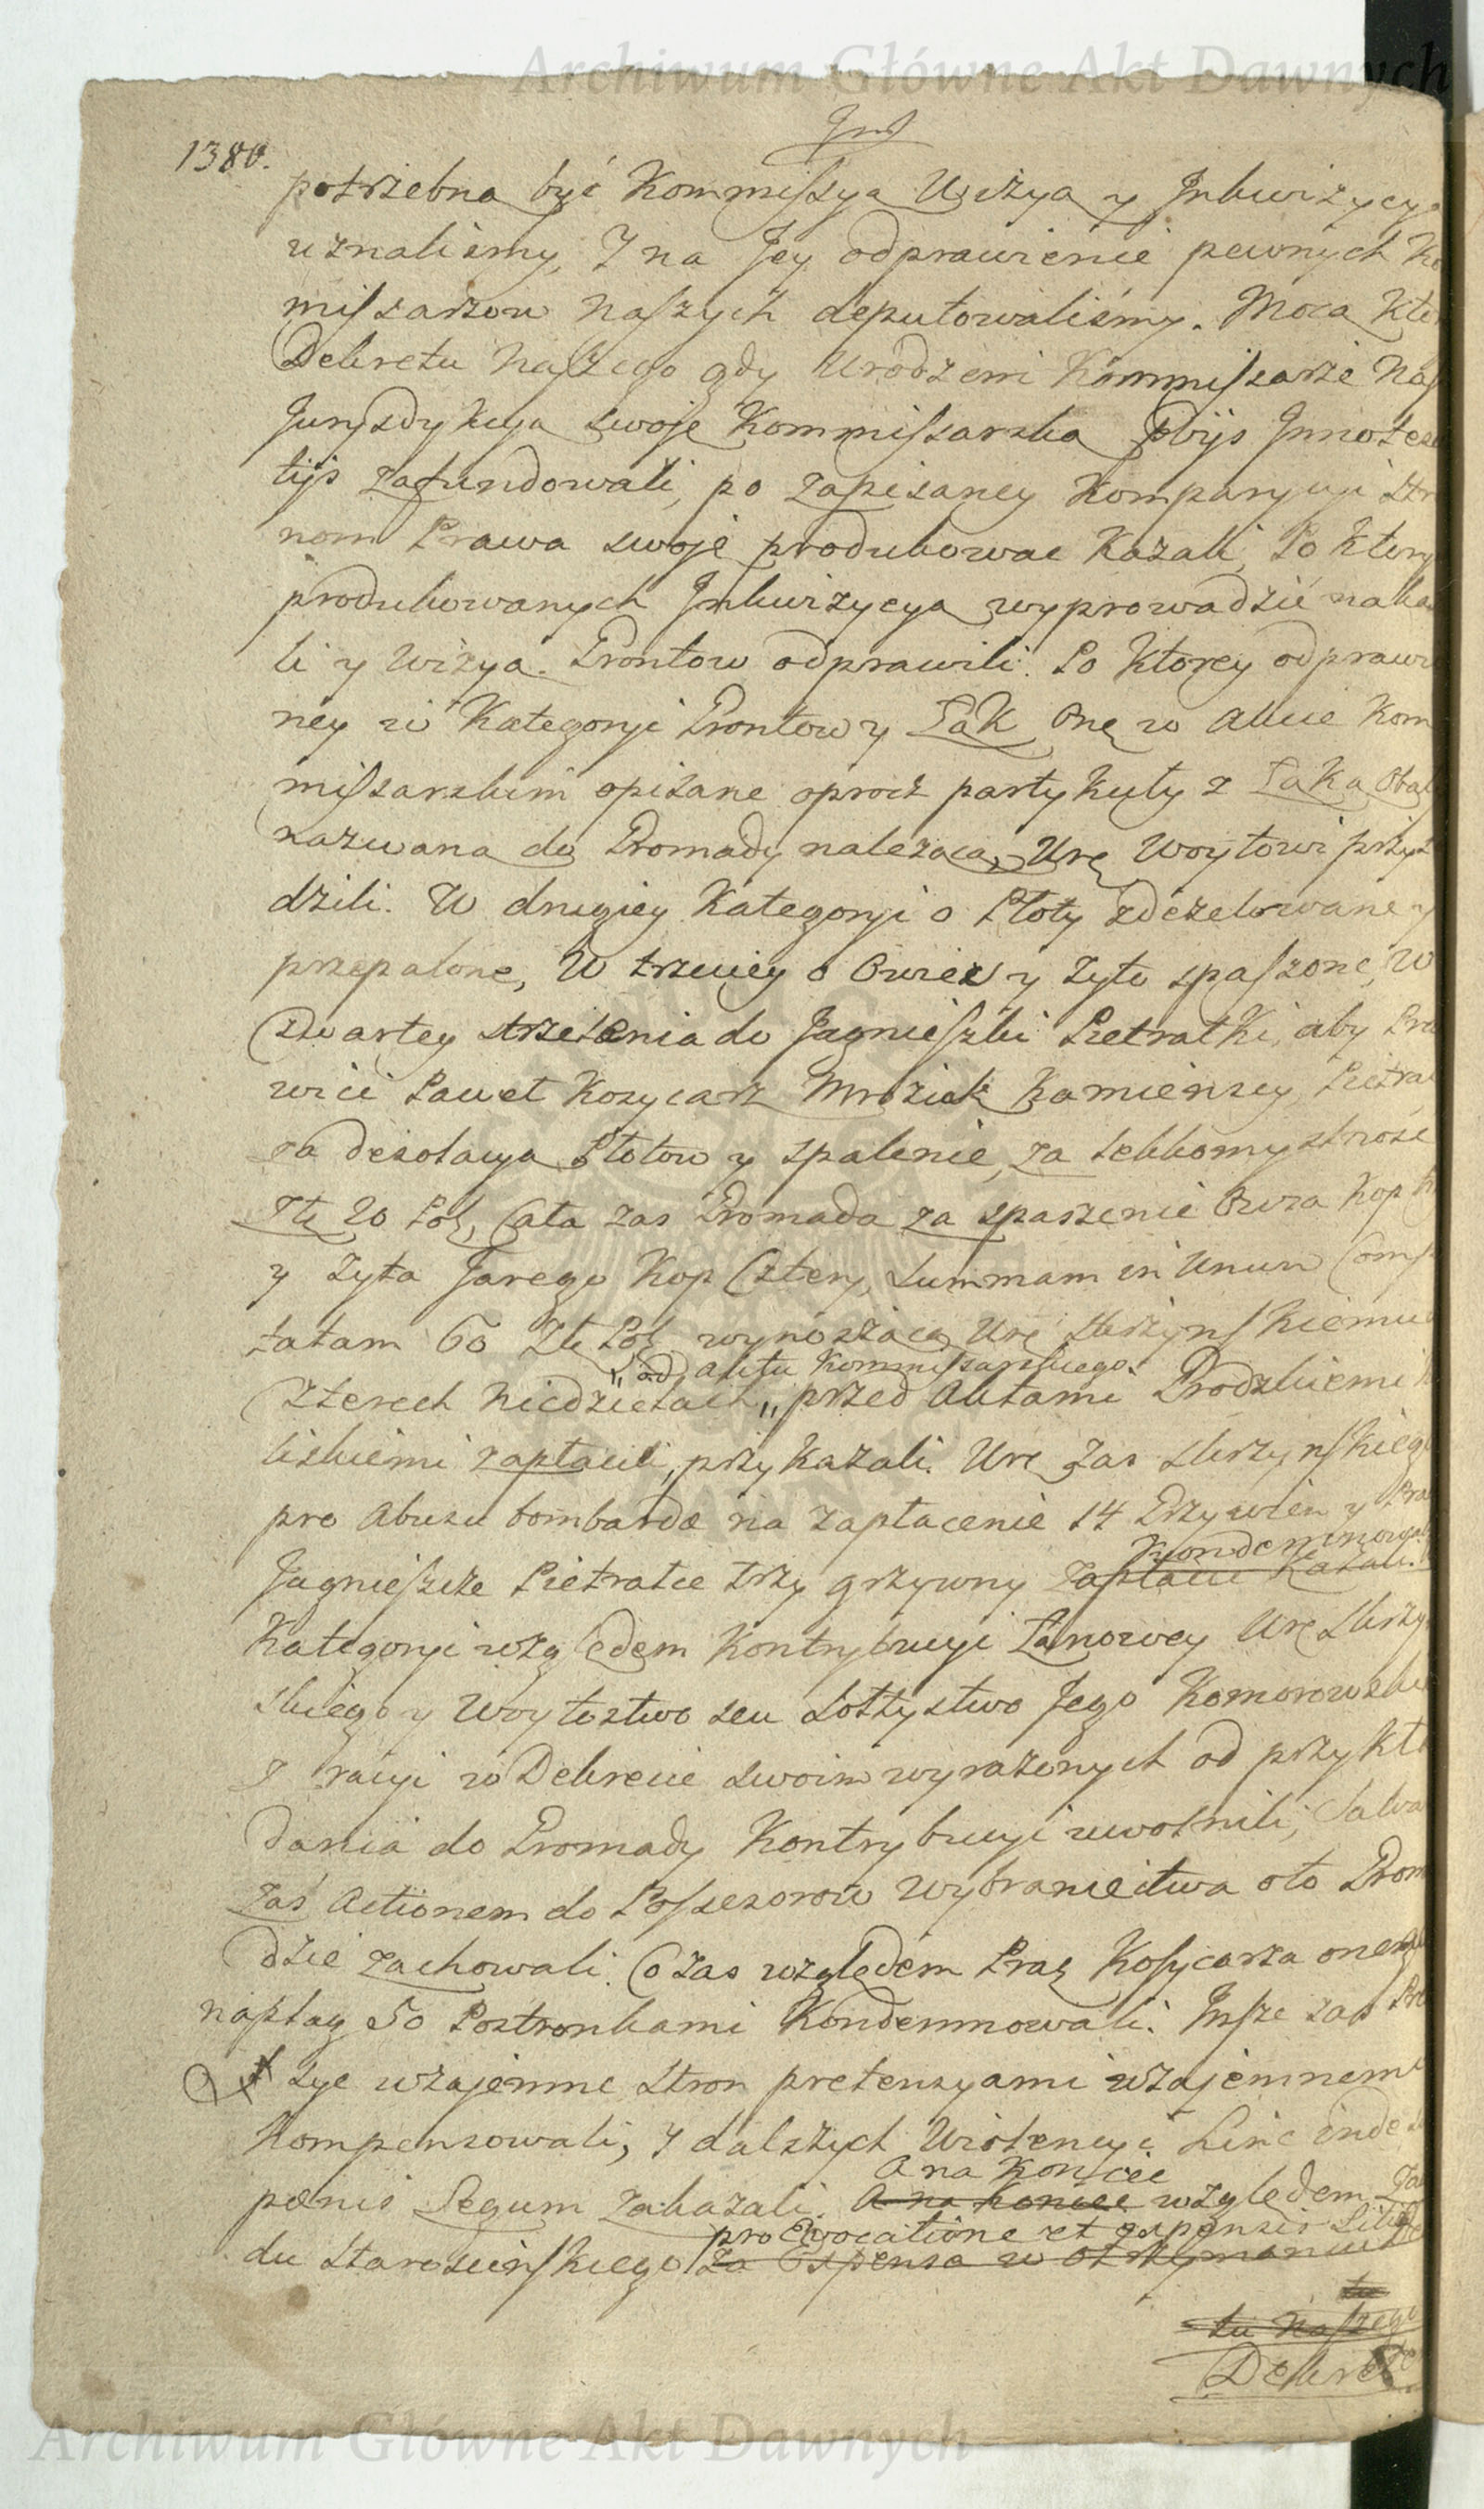 Archiwum Główne Akt Dawnych
1380.
potrzebna być Kommissya Wizya y Inkwizycya
uznaliśmy, I na Jey odprawienie pewnych Ko
missarzow Naszych deputowaliśmy. Mocą kto
Dekretu Naszego gdy Urodzeni Kommissarze Nas
Jurysdykcyą swoję Kommissarską
tijs zafundowali, po zapisaney Komparycyi Str
nom Prawa swoje produkowac Kazali, Po Ktory
produkowanych Inkwizycyą wyprowadzić naka
li y Wizyą Grontow odprawili. Po Ktorey odprawi
ney w Kategoryi Grontow y Łąk One w Akcie Kom
missarskim opisane oprocz partykuły z Łąką
nazwaną do Gromady należącą, Urę Woytowi przysą
dzili. W drugiey Kategoryi o Płoty zdezelowane y
przepalone, W trzeciey o Owies y Zyto spaszone, W
Czwartey strzelenia do Jagnieszki Pietratki, aby Pra
wici Paweł Kozycarz Mroziek Kamienscy, Pietra
za dezolacyą Płotow y spalenie, za lekkomyslnosc
Złł 20 Pol, Cała zas Gromada za spaszenie Owsa Kop
y Zyta Jarego Kop Cztery, Summam in Unum Comp
tatam 60 Złł Pol wynoszącą Urę Skrzynskiemu
" od aktu Kommissarskiego.
Czterech Niedzielach " przed Aktami Grodzkiemi
liskiemi zapłacili, przykazali. Urę zas Skrzynskiego
pro Abusu bombardæ na zapłacenie 14 Grzywien y Pra
Kondemnowali
Jagnieszce Pietratce trzy grzywny zapłacic Kazali.
Kategoryi względem Kontrybucyi Łanowey Urę Skrzy
skiego y Woytostwo seu Sołtystwo Jego Komorowski
z racyi w Dekrecie swoim wyrażonych od przykł
dania do Gromady Kontrybucyi uwolnili, Salva
zaś Actionem do Possesorow Wybraniectwa oto Grom
dzie zachowali. Co zas względem Prac Kosycarza onego
na plag 50 Postronkami Kondemnowali. Insze zas Pre
sye wzajemne Stron pretensyami wzajemnemi
Kompensowali, y dalszych Violencyi hinc inde s
pœnis Legum zakazali. A na Koniec
A na Koniec względem Za
pro Evocatione et expensis Litis
du Staroscinskiego za Expensa w otrzymaniu
tu
tu Naszego
Dekret
Archiwum Główne Akt Dawnych